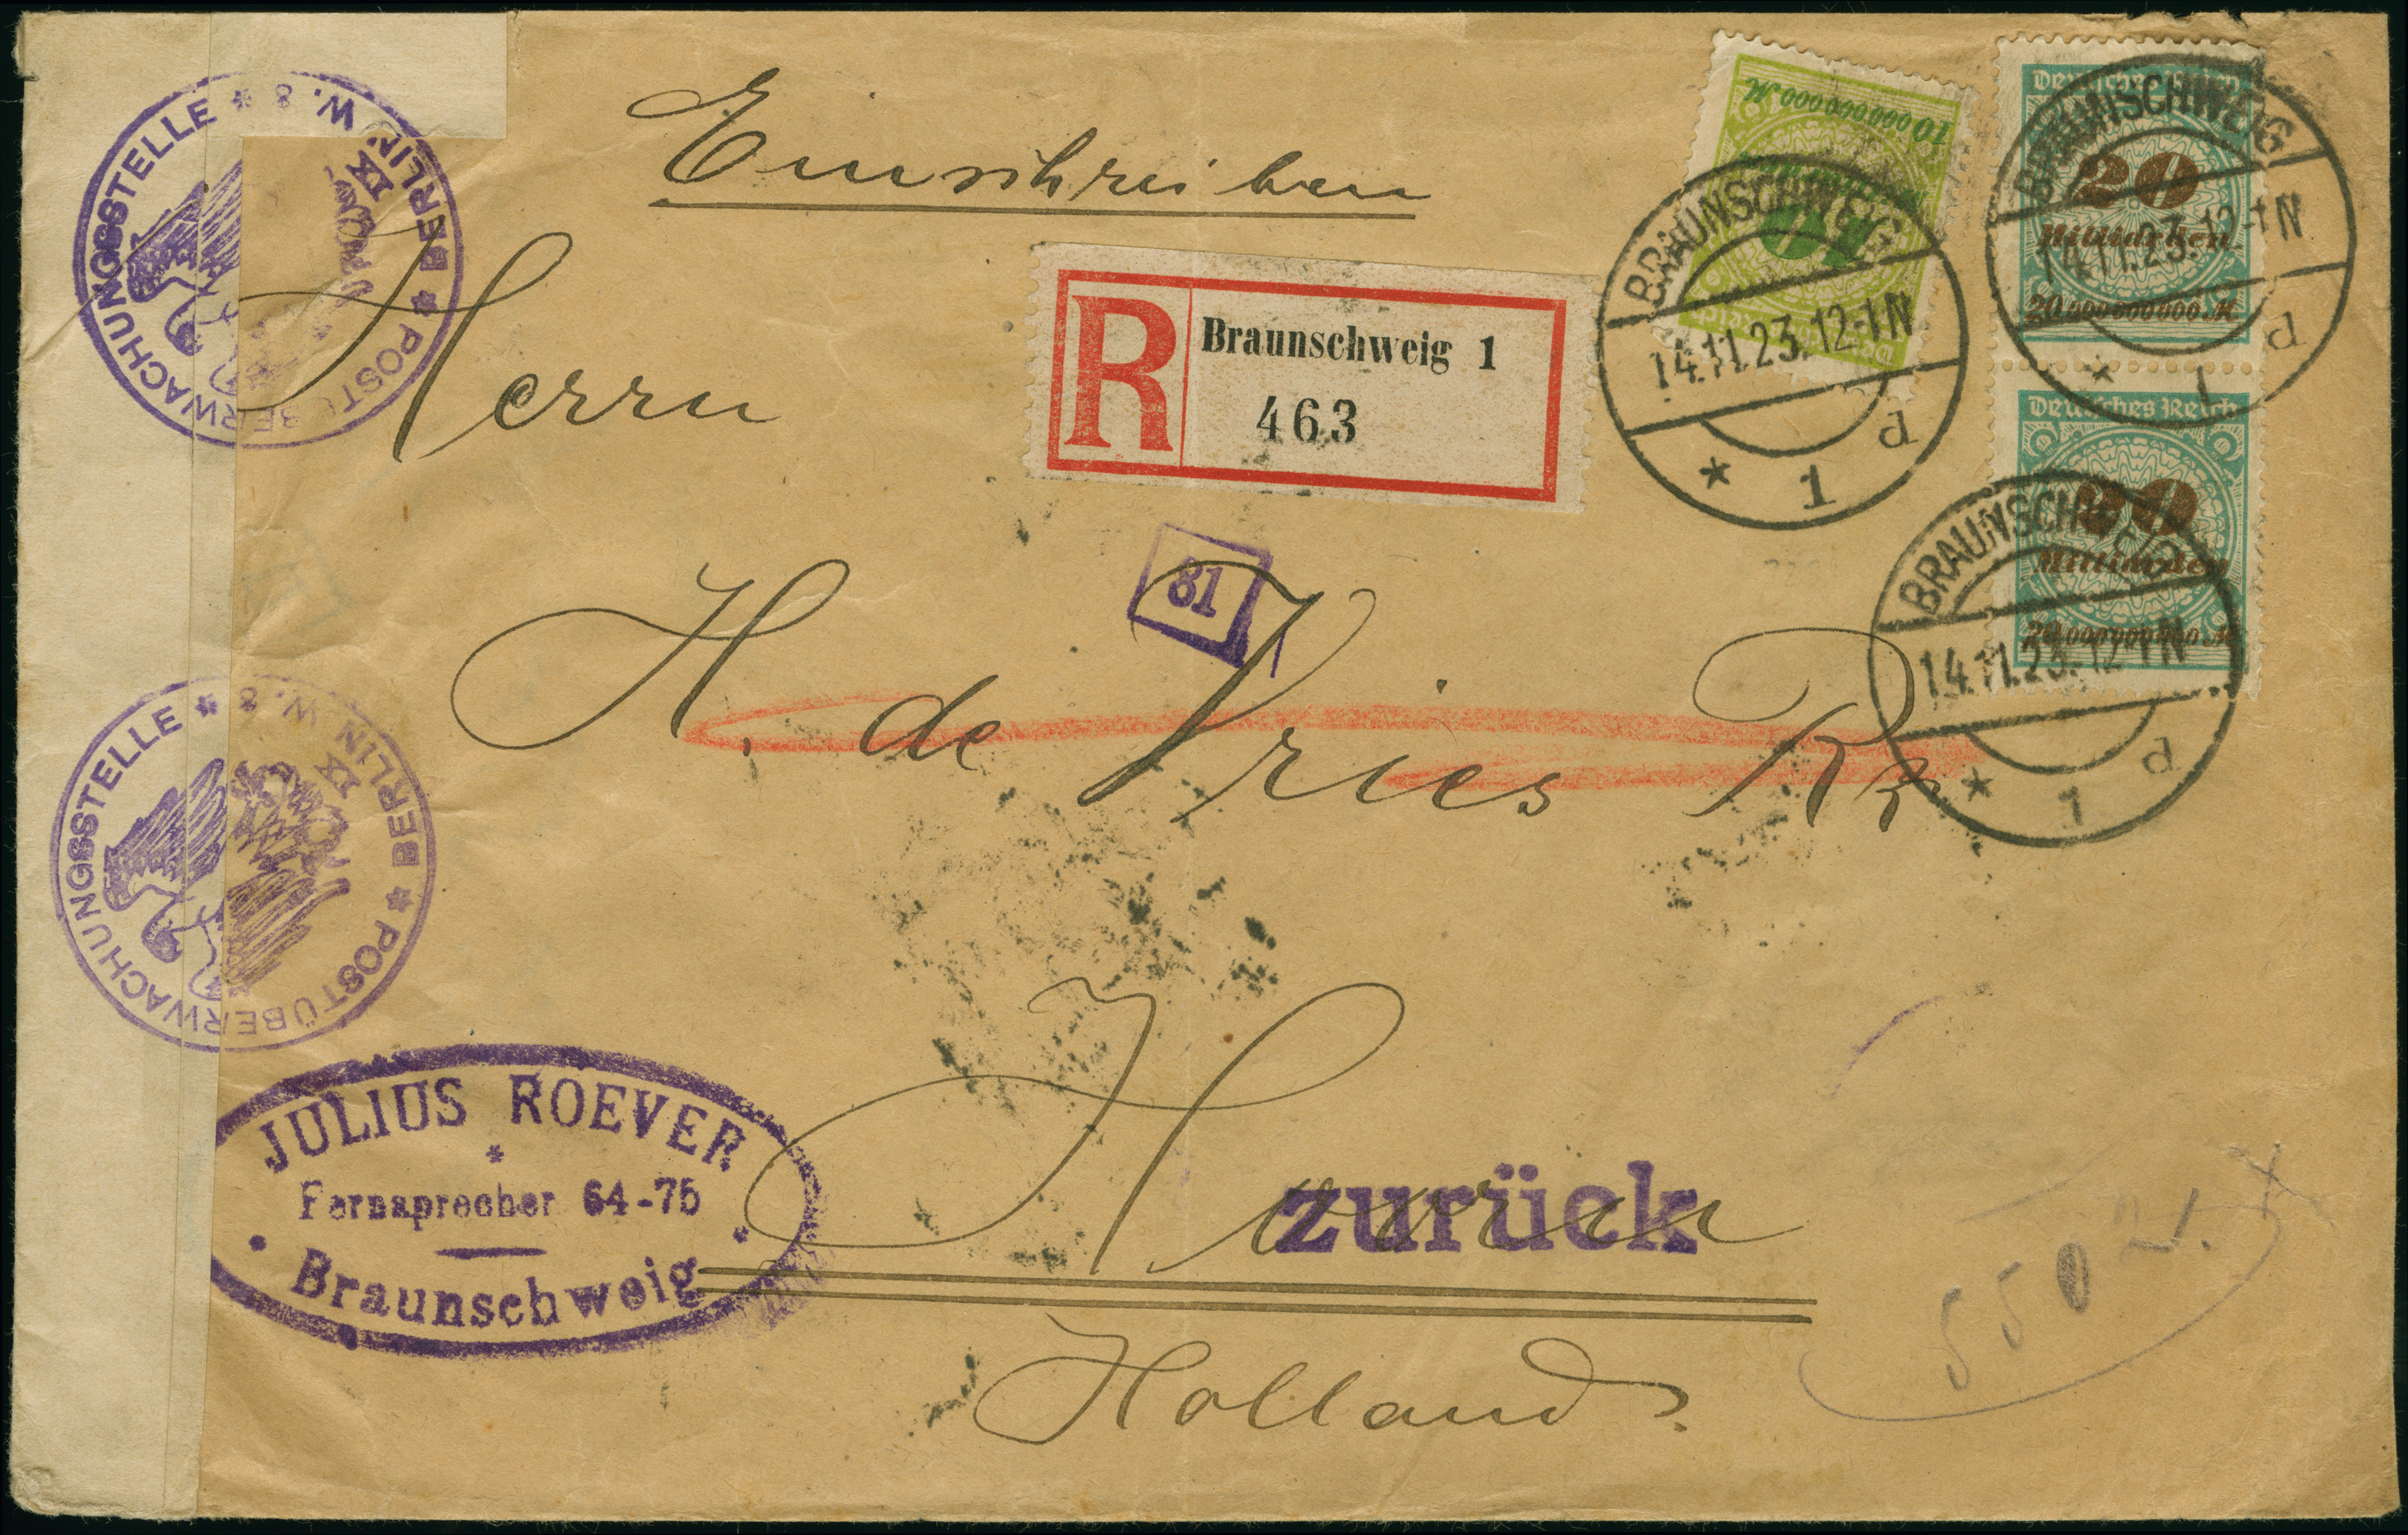 Einschreiben
Herrn
R Braunschweig 1
463
81
H. de Vries Rz
Hoorn
zurück
Holland
JULIUS ROEVER
Fernsprecher 64-75
Braunschweig
POSTÜBERWACHUNGSSTELLE * BERLIN W. 8 *
IX
POSTÜBERWACHUNGSSTELLE * BERLIN W. 8 *
IX
10 000 000 000 M.
10
BRAUNSCHWEIG
14.11.23. 12-1N
* 1 d
Deutsches Reich
20
Milliarden
20 000 000 000 M
BRAUNSCHWEIG
14.11.23. 12-1N
* 1 d
Deutsches Reich
20
Milliarden
20 000 000 000 M
BRAUNSCHWEIG
14.11.23. 12-1N
* 1 d
550